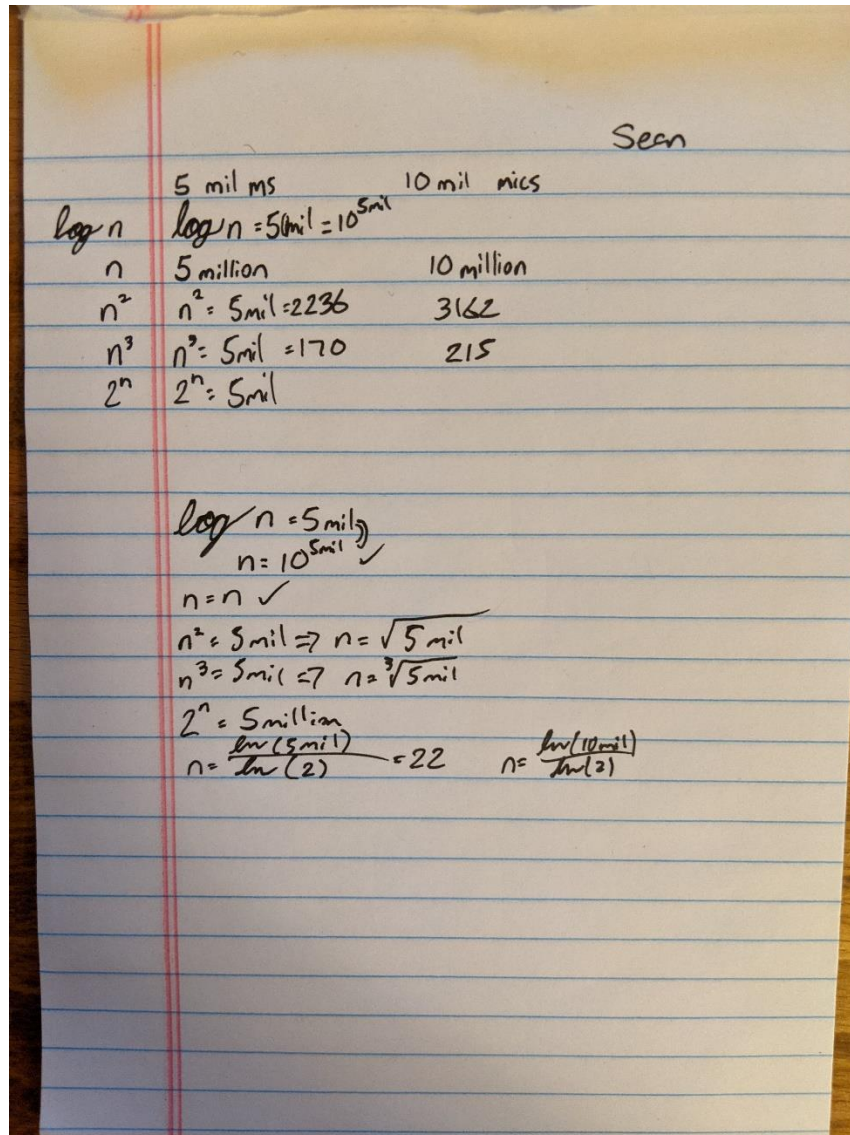 Sean
5 mil ms 10 mil mics
log n log n = 5mil = 10^5mil
n 5 million 10 million
n² n² = 5mil = 2236 3162
n³ n³ = 5mil = 170 215
2ⁿ 2ⁿ = 5mil
log n = 5mil
n = 10^5mil ✓
n = n ✓
n² = 5mil => n = √5mil
n³ = 5mil => n = ³√5mil
2ⁿ = 5million
n = ln(5mil)/ln(2) = 22 n = ln(10mil)/ln(2)